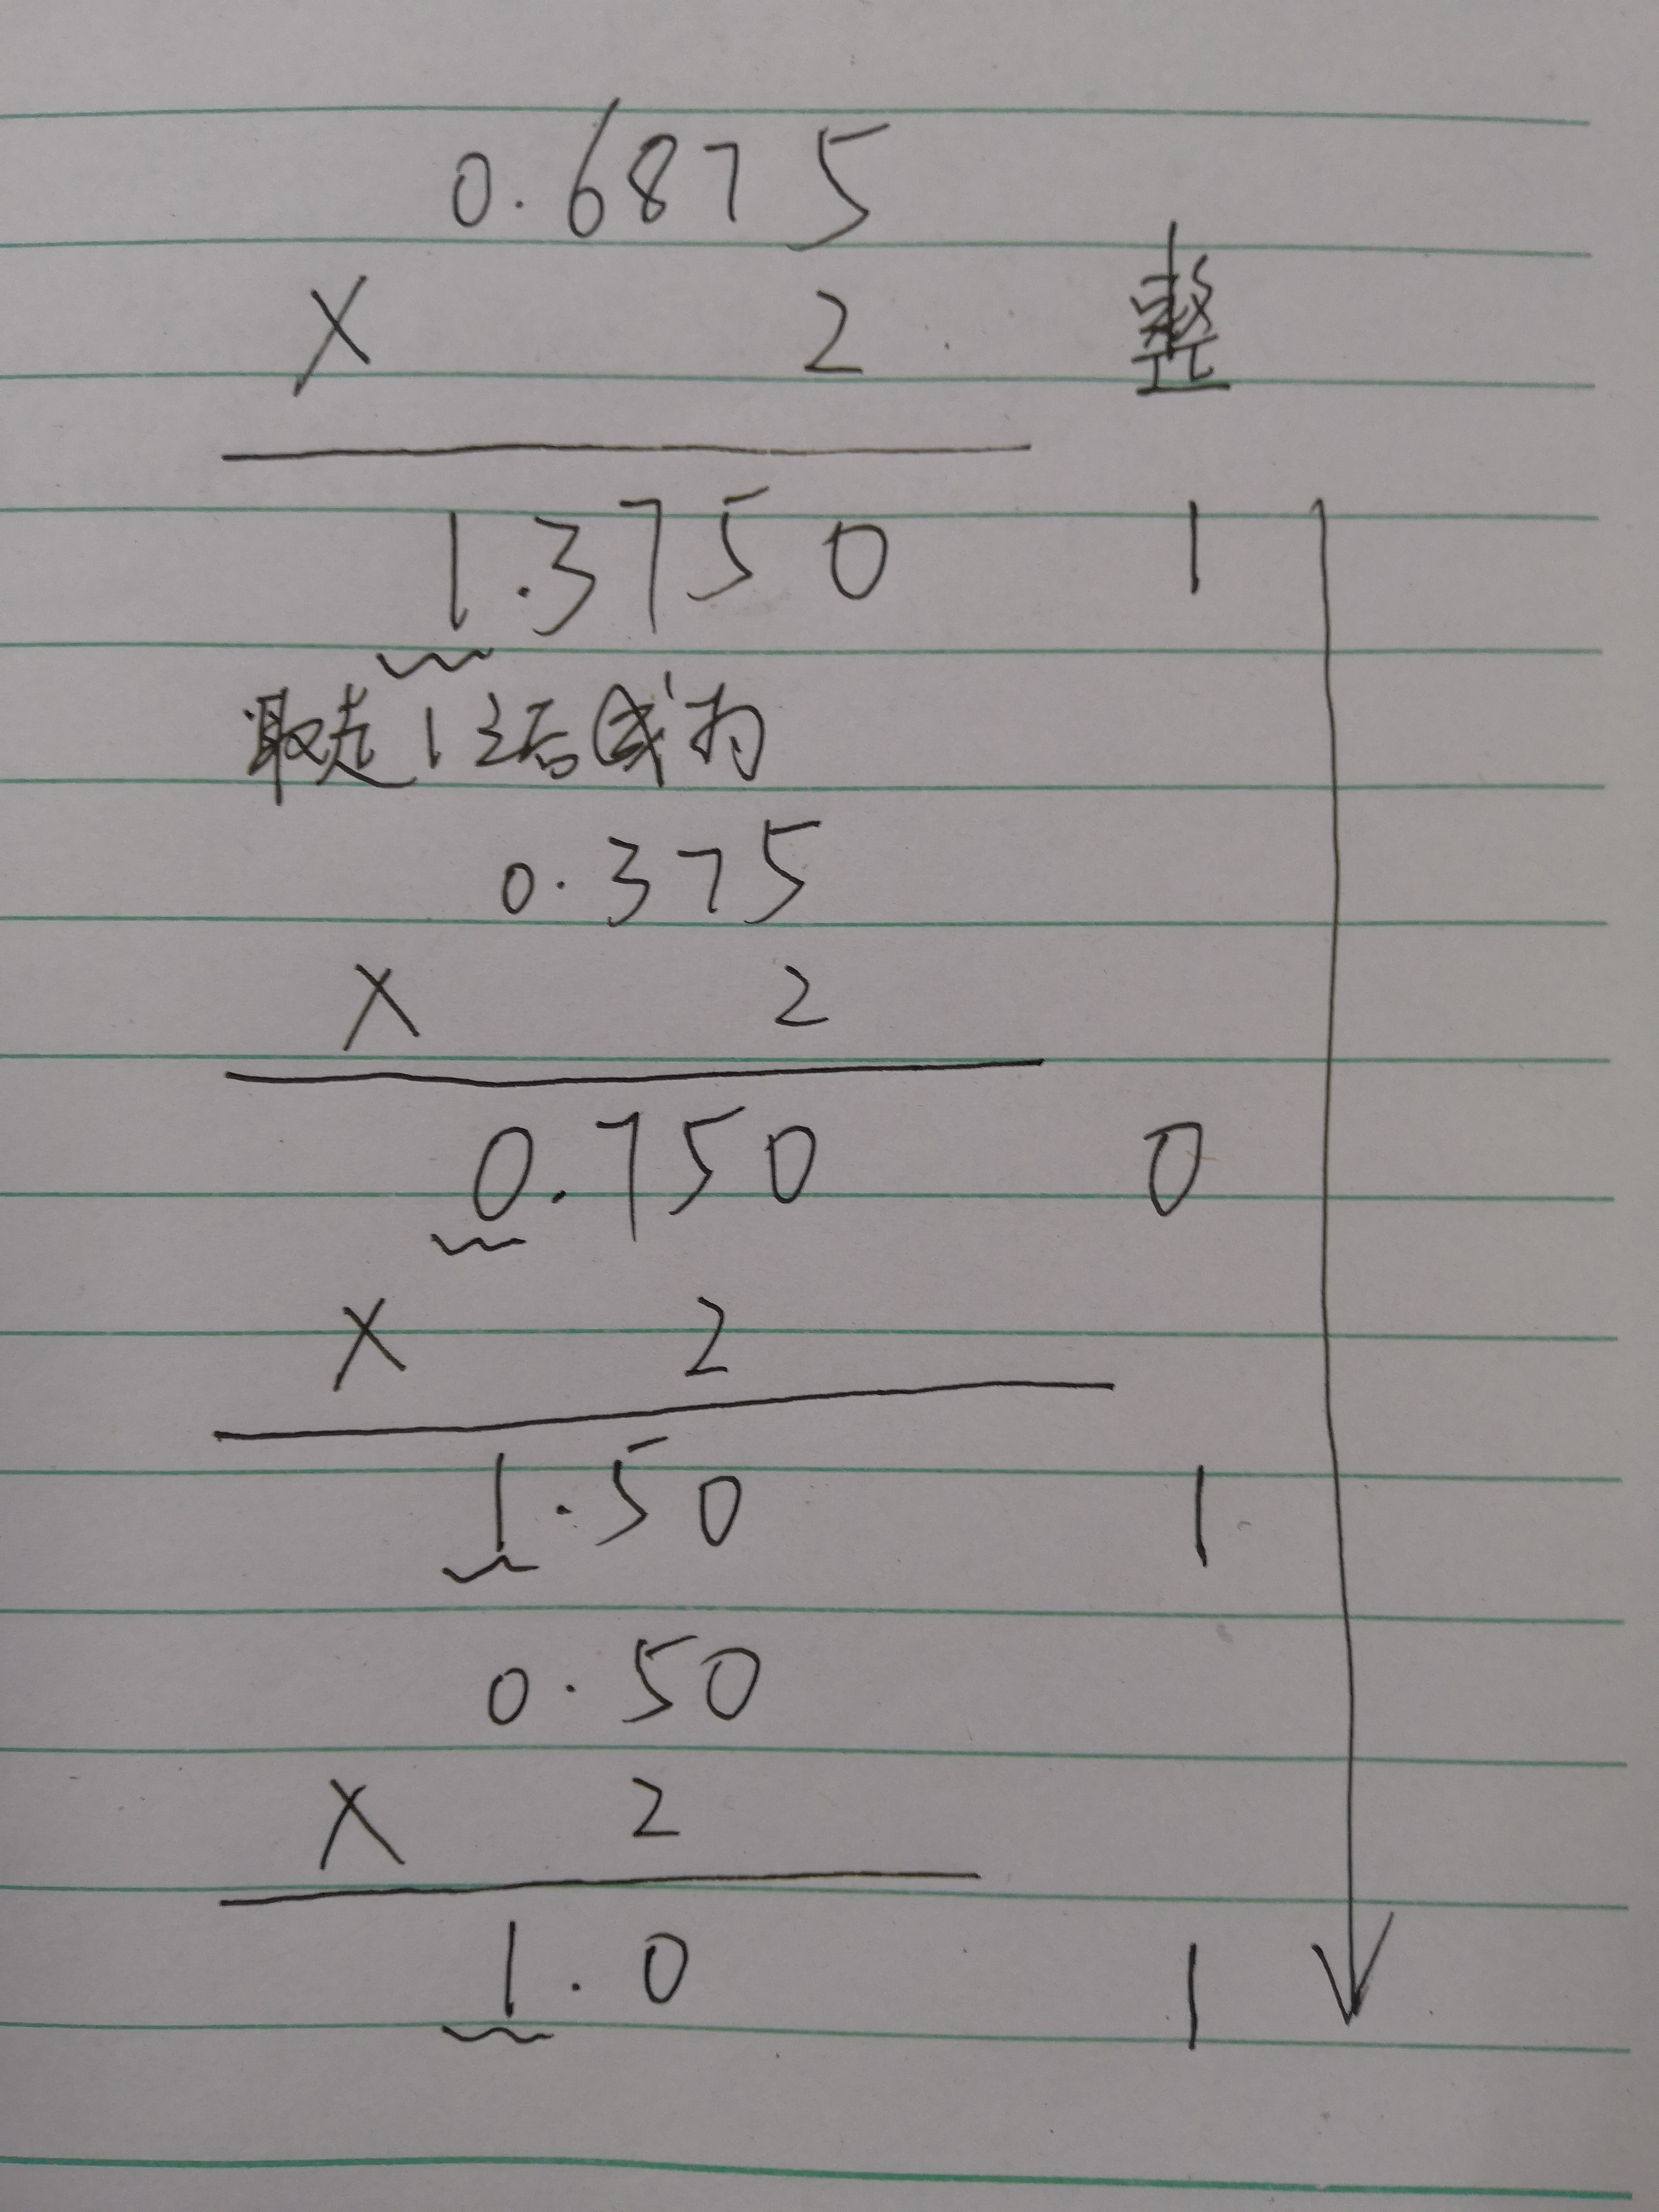 0.6875
× 2 整
1.3750 1
取走1之后成为
0.375
× 2
0.750 0
× 2
1.50 1
0.50
× 2
1.0 1